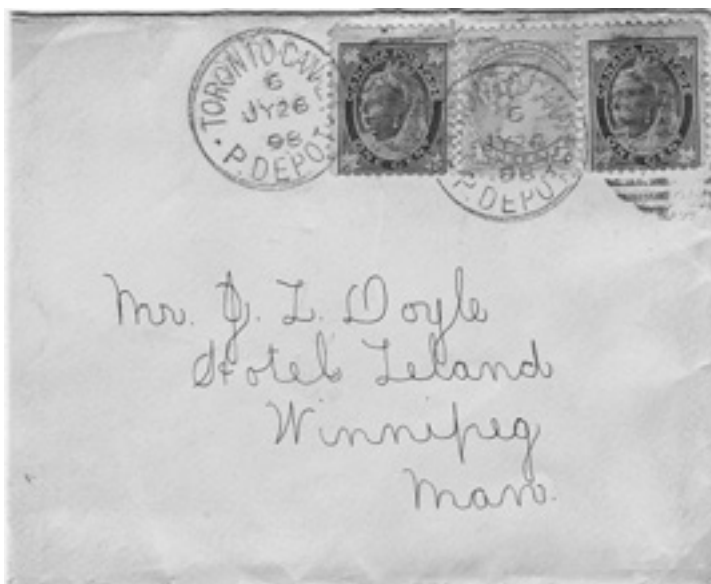 TORONTO CANADA
6
JY 26
98
P. DEPOT
6
JY 26
98
P. DEPOT
Mr. J. L. Doyle
Hotel Leland
Winnipeg
Man.